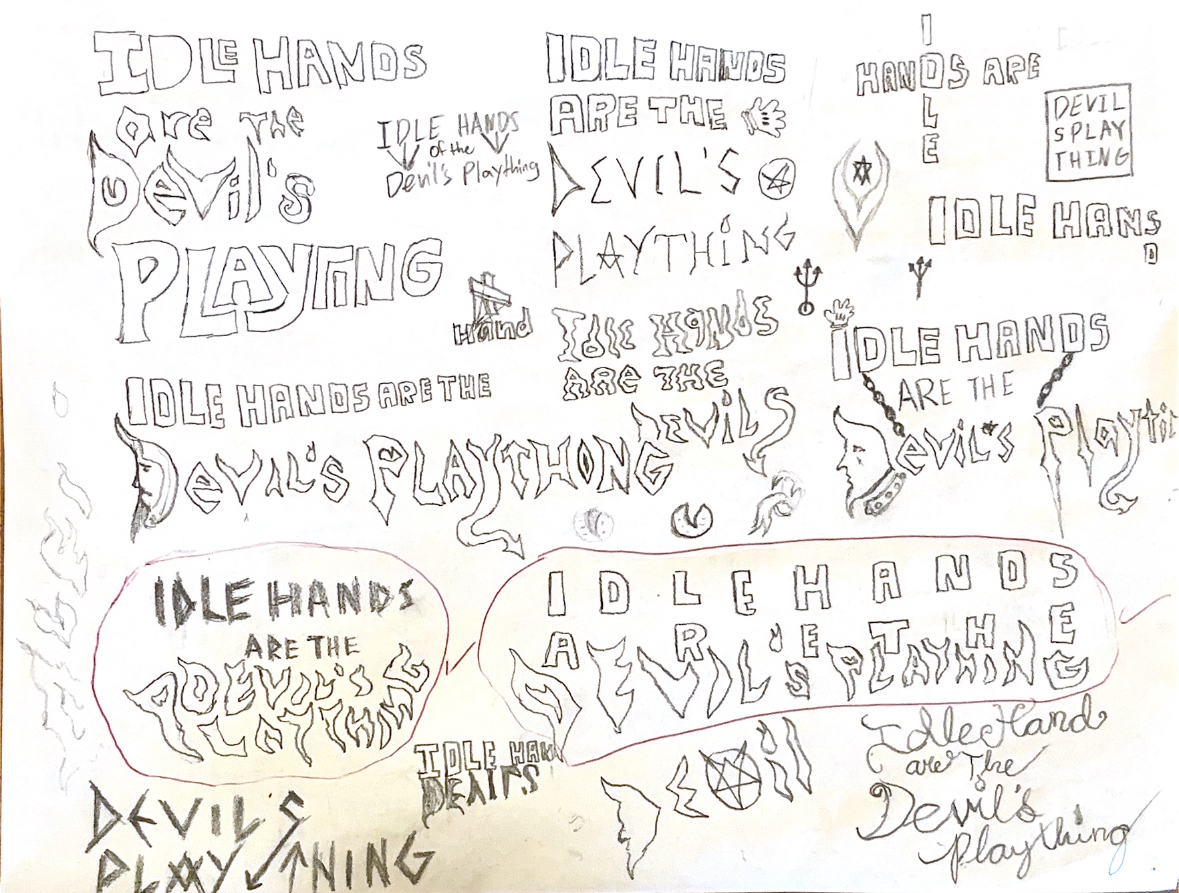 IDLE HANDS
are the
Devil's
PLAYTING
IDLE HANDS
of the
Devil's Plaything
IDLE HANDS
ARE THE
DEVIL'S
PLAYTHING
IDLE
HANDS ARE
DEVIL
SPLAY
THING
IDLE HANSD
Hand
IDLE HANDS
ARE THE
DEVILS
IDLE HANDS ARE THE
DeVIL'S PLAYTHONG
IDLE HANDS
ARE THE
Devil's Playti
IDLE HANDS
ARE THE
DEVIL'S
PLAYTHING
IDLE HANDS
ARE THE
DEVIL'S PLAYTHING
IDLE HAN
DEVIL
Idle Hand
are The
Devil's
Plaything
DEVIL'S